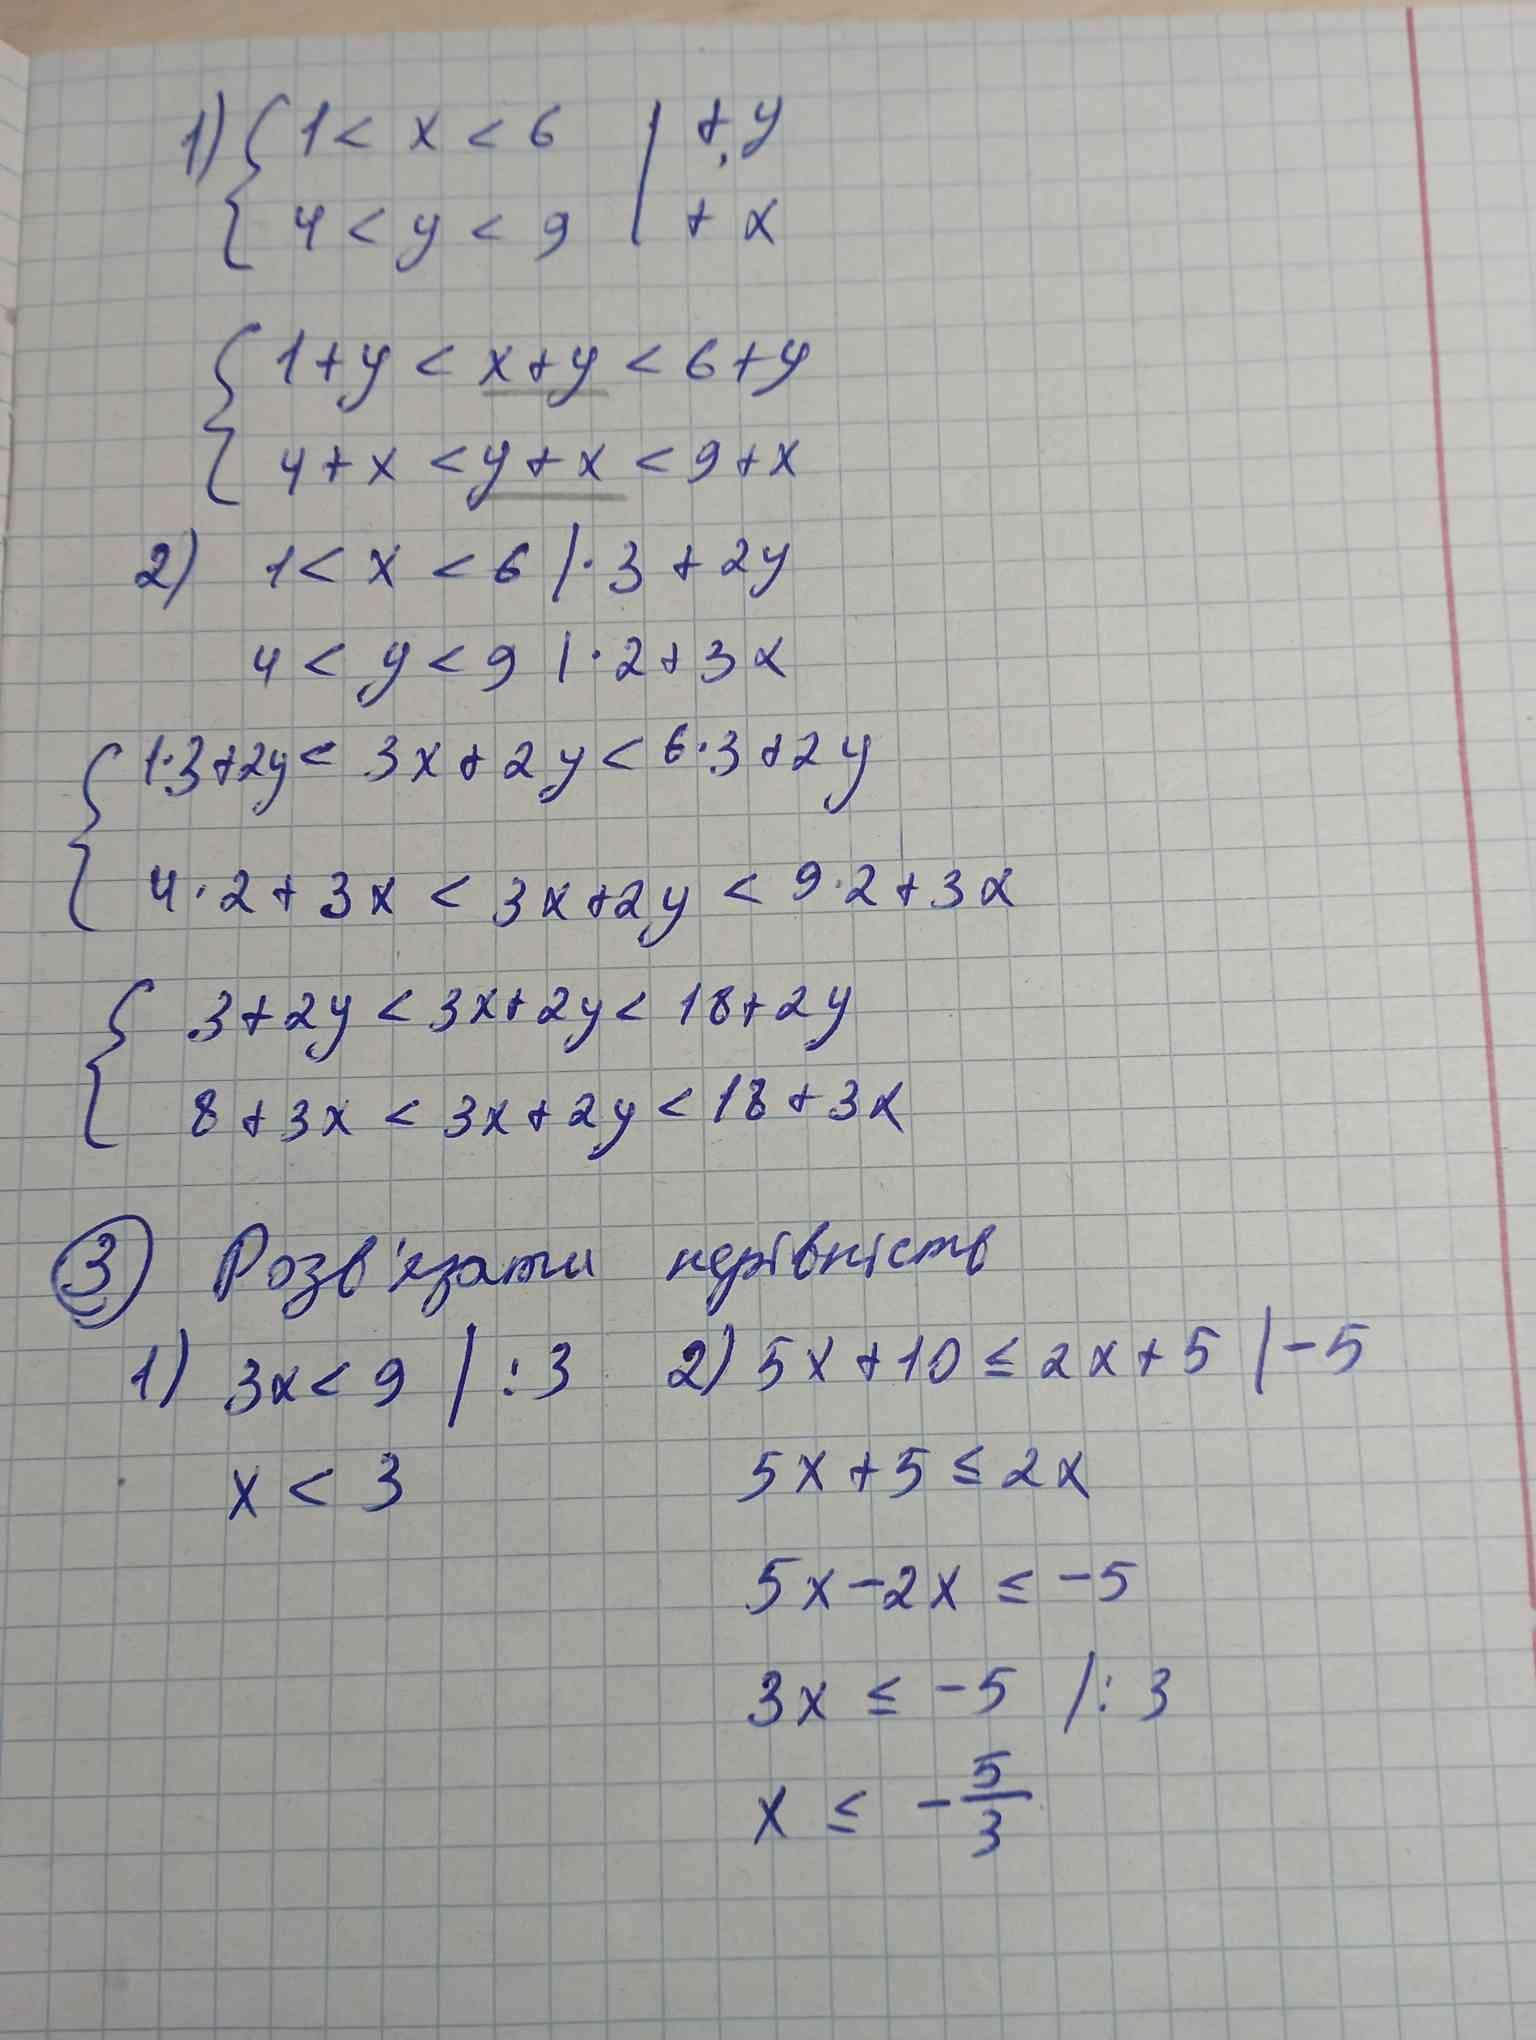 1) { 1 < x < 6 | + y
4 < y < 9 | + x
{ 1 + y < x + y < 6 + y
4 + x < y + x < 9 + x
2) 1 < x < 6 | · 3 + 2y
4 < y < 9 | · 2 + 3x
{ 1·3 + 2y < 3x + 2y < 6·3 + 2y
4·2 + 3x < 3x + 2y < 9·2 + 3x
{ 3 + 2y < 3x + 2y < 18 + 2y
8 + 3x < 3x + 2y < 18 + 3x
③ Розв'язати нерівність
1) 3x < 9 | : 3 2) 5x + 10 ≤ 2x + 5 | - 5
x < 3 5x + 5 ≤ 2x
5x - 2x ≤ -5
3x ≤ -5 | : 3
x ≤ -5/3